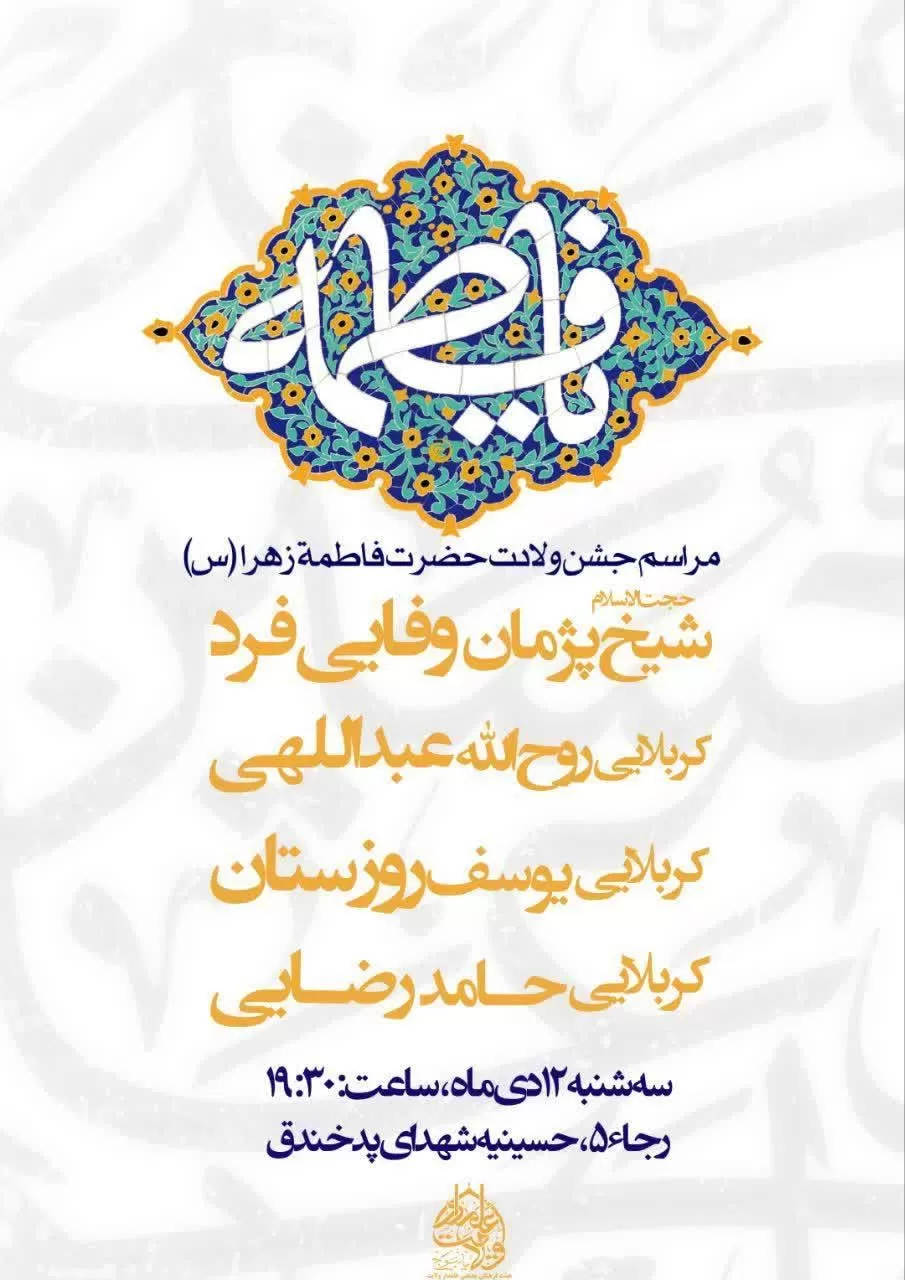 فاطمه
مراسم جشن ولادت حضرت فاطمة زهرا (س)
حجت‌الاسلام
شیخ پژمان وفایی فرد
کربلایی روح الله عبداللهی
کربلایی یوسف روزستان
کربلایی حامد رضایی
سه‌شنبه ۱۲ دی ماه، ساعت: ۱۹:۳۰
رجاء ۵، حسینیه شهدای پد خندق
علمدار ولایت
هیئت فرهنگی مذهبی علمدار ولایت